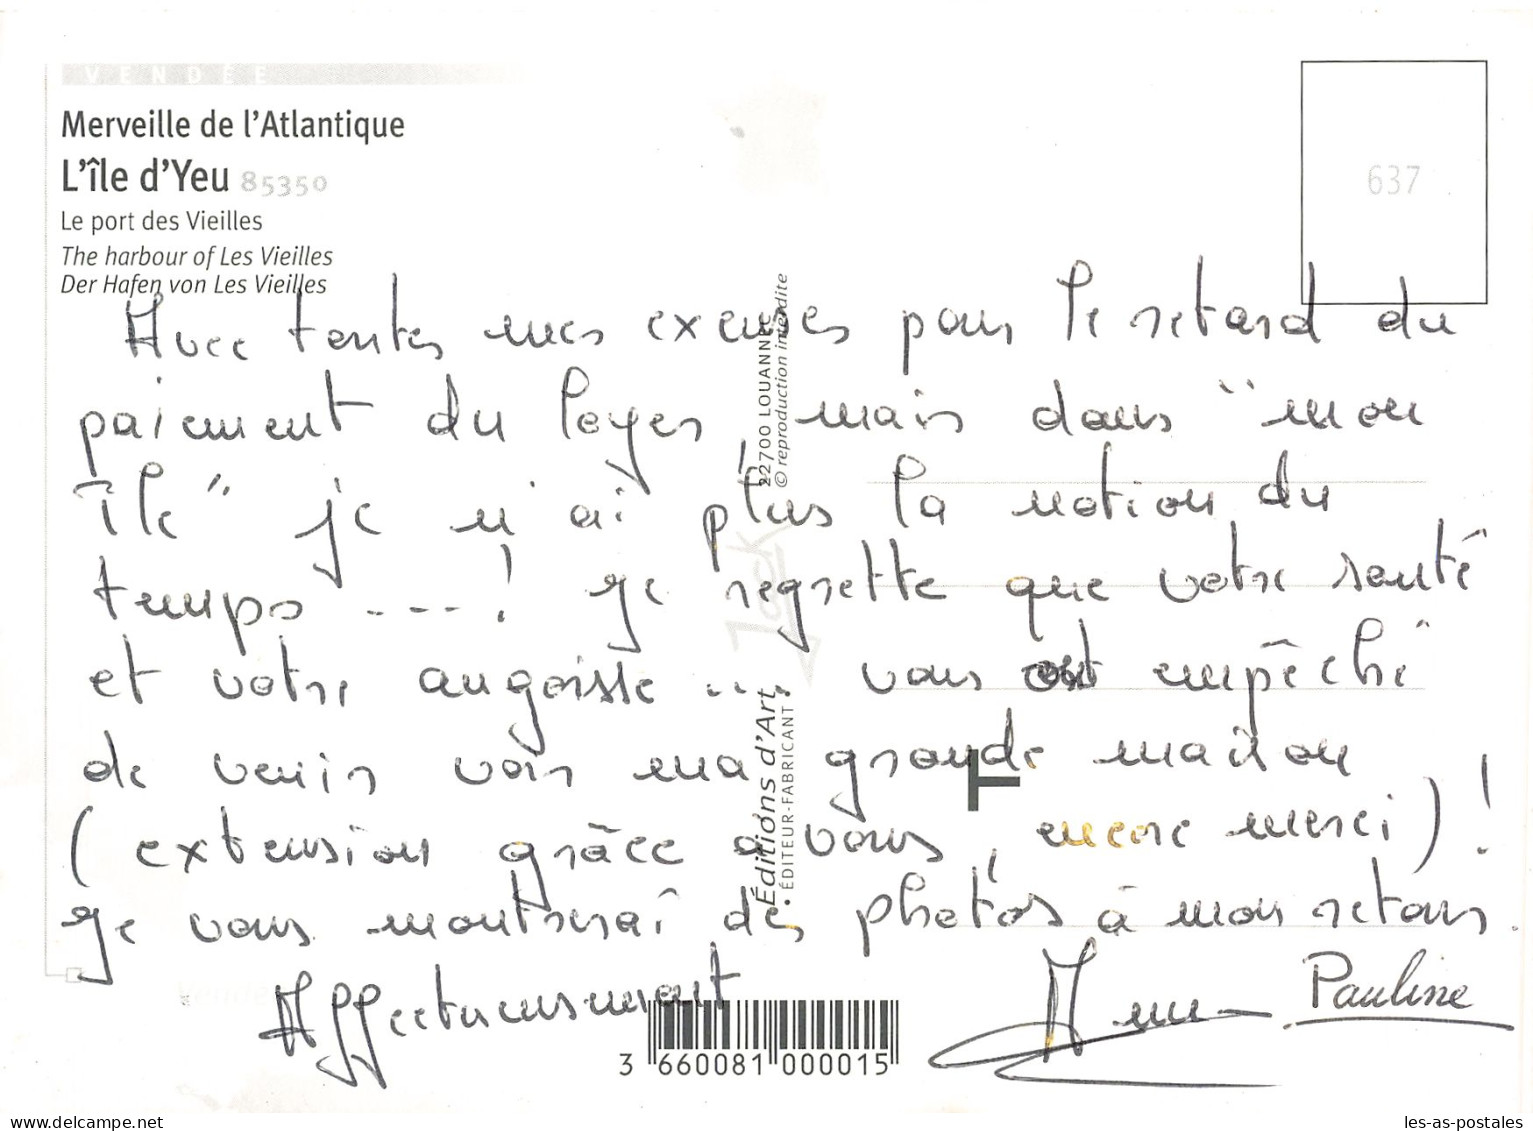 VENDÉE
Merveille de l'Atlantique
L'île d'Yeu 85350
Le port des Vieilles
The harbour of Les Vieilles
Der Hafen von Les Vieilles
637
Avec toutes mes excuses pour le retard du
paiement du loyer, mais dans "mon
île" je n'ai plus la notion du
temps ----! Je regrette que votre santé
et votre angoisse ... vous ont empêché
de venir voir ma grande maison
(extension grâce à vous, encore merci)!
Je vous montrerai des photos à mon retour.
Affectueusement
Pauline
22700 LOUANNEC
© reproduction interdite
Jack
Éditions d'Art
ÉDITEUR-FABRICANT
T
3 660081 000015
delcampe.net
les-as-postales